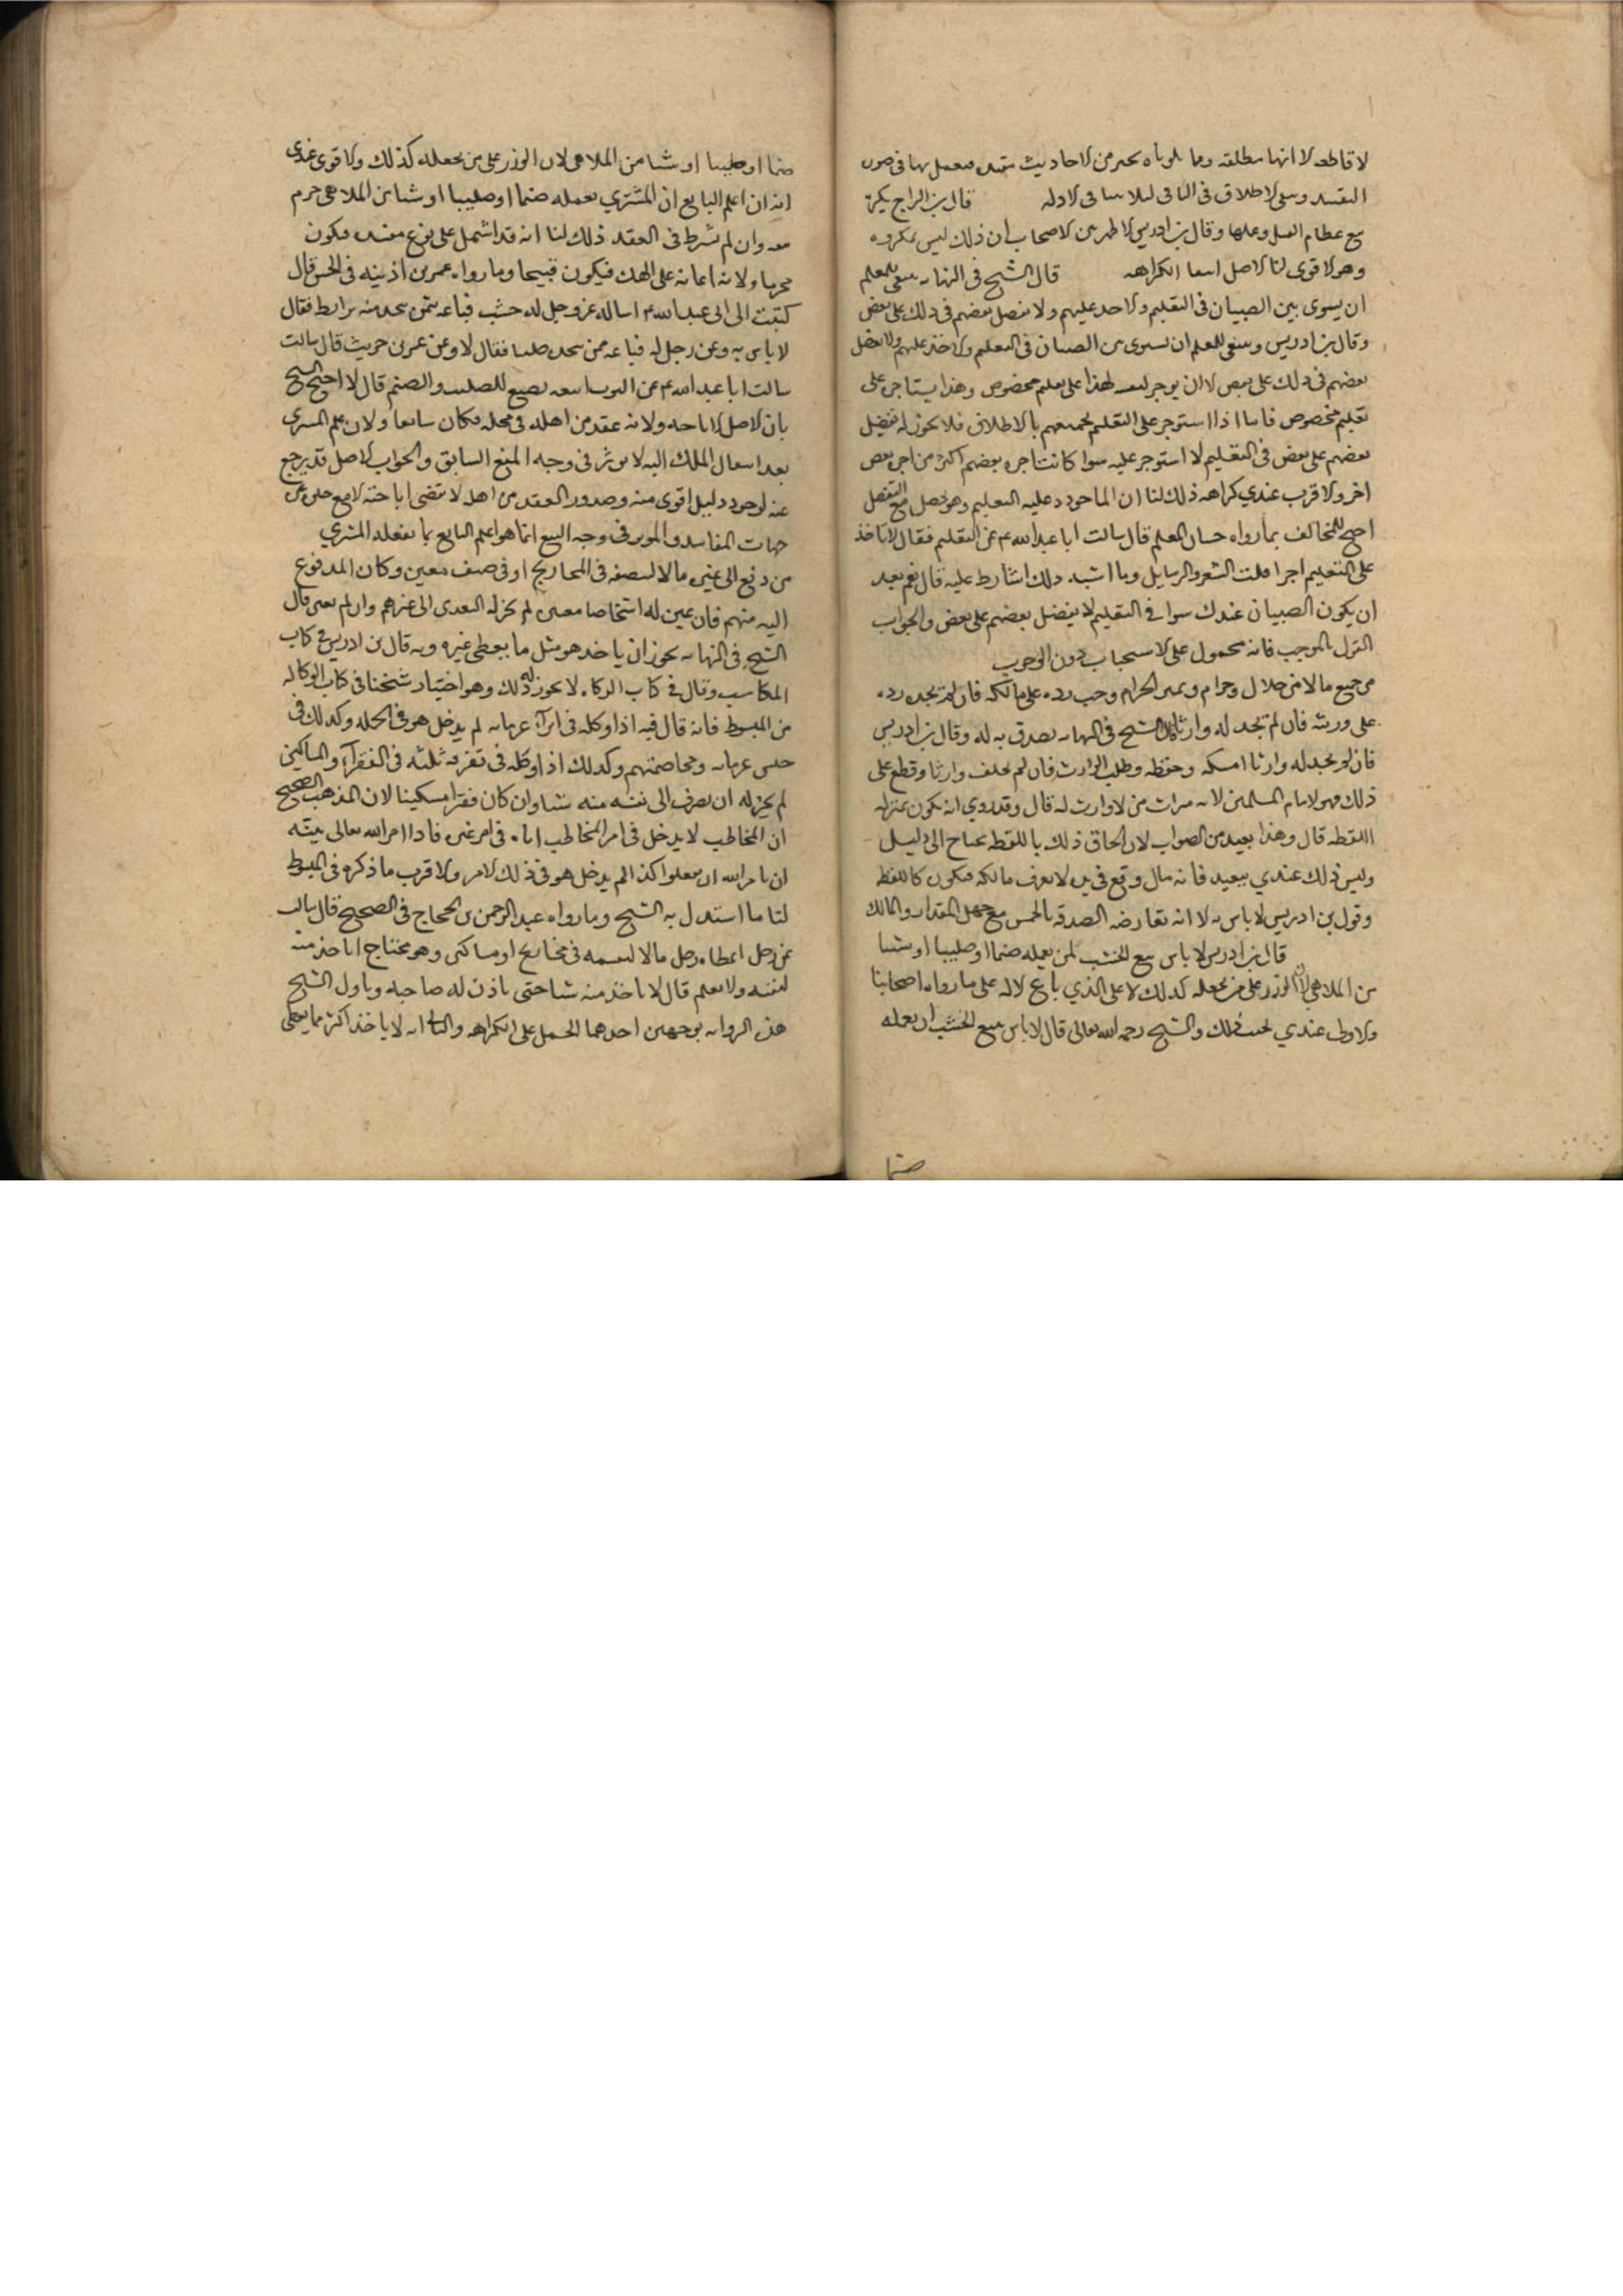 لا قاطعه لا انها مطلقه وما تلوناه يحير من الاحاديث مقيده فيعمل بها في صورة
التقييد ويبقى الاطلاق في الباقي لئلا يتنافى الادله قال بن البراج يكره
بيع عظام الفيل وعملها وقال بن ادريس الاظهر من الاصحاب ان ذلك ليس بمكروه
وهو الاقوى لنا الاصل انتفا الكراهه قال الشيخ في النهايه ينبغي للمعلم
ان يسوى بين الصبيان في التعليم والاخذ عليهم ولا يفضل بعضهم في ذلك على بعض
وقال بن ادريس وينبغي للمعلم ان يسوى بين الصبيان في التعليم والاخذ عليهم ولا يفضل
بعضهم في ذلك على بعض الا ان يوجر نفسه لهذا على تعليم مخصوص وهذا يستاجره على
تعليم مخصوص فاما اذا استوجر على التعليم لجميعهم بالاطلاق فلا يجوز له تفضيل
بعضهم على بعض في التعليم لا استوجر عليه سوا كانت اجرة بعضهم اكثر من اجرة بعض
اخر والاقرب عندي كراهه ذلك لنا ان الماخوذ عليه التعليم وهو يحصل مع التفضيل
احتج المخالف بما رواه حسان المعلم قال سالت ابا عبد الله ع عن التعليم فقال لا تاخذ
على التعليم اجرا قلت الشعر والرسايل وما اشبه ذلك اشارط عليه قال نعم بعد
ان يكون الصبيان عندك سوا في التعليم لا يفضل بعضهم على بعض والجواب
القول بالموجب فانه محمول على الاستحباب دون الوجوب
من جمع مالا من حلال وحرام وتميز الحرام وجب رده على مالكه فان لم يجده رده
على ورثته فان لم يجد له وارثا قال الشيخ في النهايه تصدق به له وقال بن ادريس
فان لم يجد له وارثا امسكه وحفظه وطلب الوارث فان لم يخلف وارثا وقطع على
ذلك فهو لامام المسلمين لانه ميراث من لا وارث له قال وقد روي انه يكون بمنزله
اللقطه قال وهذا بعيد من الصواب لان الحاق ذلك باللقطه يحتاج الى دليل
وليس ذلك عندي ببعيد فانه مال وقع في يده لا يعرف مالكه فيكون كاللقطه
وقول بن ادريس لا باس به الا انه تعارضه الصدقه بالخمس مع جهل المقدار والمالك
قال بن ادريس لا باس ببيع الخشب لمن يعمله صنما او صليبا او شيا
من الملاهي لان الوزر على من يجعله كذلك لا على الذي باع الاله على ما رواه اصحابنا
والاولى عندي تجنب ذلك والشيخ رحمه الله تعالى قال لا باس ببيع الخشب ان يعمله
صنما
صنما او صليبا او شيا من الملاهي لان الوزر على من يجعله كذلك والاقوى عندي
انه ان اعلم البايع ان المشتري يعمله صنما او صليبا او شيا من الملاهي حرم
بيعه وان لم يشرط في العقد ذلك لنا انه قد اشتمل على نوع مفسده فيكون
محرما ولانه اعانه على الهتك فيكون قبيحا وما رواه عمر بن اذينه في الحسن قال
كتبت الى ابي عبد الله ع اساله عن رجل له خشب فباعه ممن يتخد منه برابط فقال
لا باس به وعن رجل له فباعه ممن يتخذه صلبا فقال لا وعن عمرو بن حريث قال سالت
سالت ابا عبد الله ع عن التوت ابيعه يصنع للصليب والصنم قال لا احتج الشيخ
بان الاصل الاباحه ولانه عقد من اهله في محله فكان سايغا ولان علم المشترى
بعد انتقال الملك اليه لا يوثر في وجه المنع السابق والجواب الاصل قد يرجع
عنه لوجود دليل اقوى منه وصدور العقد من اهله لا يقتضى اباحته الا مع خلوه عن
جهات المفاسد والموثر في وجه البيع انما هو اعلم البايع بما يفعله المشتري
من دفع الى غيره مالا ليصرفه في المحاويج او في صنف معين وكان المدفوع
اليه منهم فان عين له اشخاصا معينين لم يجز له التعدى الى غيرهم وان لم يعين قال
الشيخ في النهايه يجوز ان ياخد هو مثل ما يعطى غيره وبه قال بن ادريس في كتاب
المكاسب وقال في كتاب الزكاه لا يجوز له ذلك وهو اختيار شيخنا في كتاب الوكاله
من المبسوط فانه قال فيه اذا وكله في ابرآء غرمايه لم يدخل هو في الجمله وكذلك في
حبس غرمايه ومخاصمتهم وكذلك اذا وكله في تفرقه ثلثه في الفقرآء والمساكين
لم يجز له ان يصرف الى نفسه منه شيا وان كان فقيرا مسكينا لان المذهب الصحيح
ان المخاطب لا يدخل في امر المخاطب اياه في امر غيره فاذا امر الله تعالى نبيه
ان يامر الله ان يفعلوا كذا لم يدخل هو في ذلك الامر والاقرب ما ذكره في المبسوط
لنا ما استدل به الشيخ وما رواه عبد الرحمن بن الحجاج في الصحيح قال سالته
عن رجل اعطاه رجل مالا ليقسمه في محاويج او مساكين وهو محتاج اياخذ منه
لنفسه ولا يعلم قال لا ياخذ منه شيا حتى ياذن له صاحبه وتاول الشيخ
هذه الروايه بوجهين احدهما الحمل على الكراهه والثاني انه لا ياخذ اكثر مما يعطى